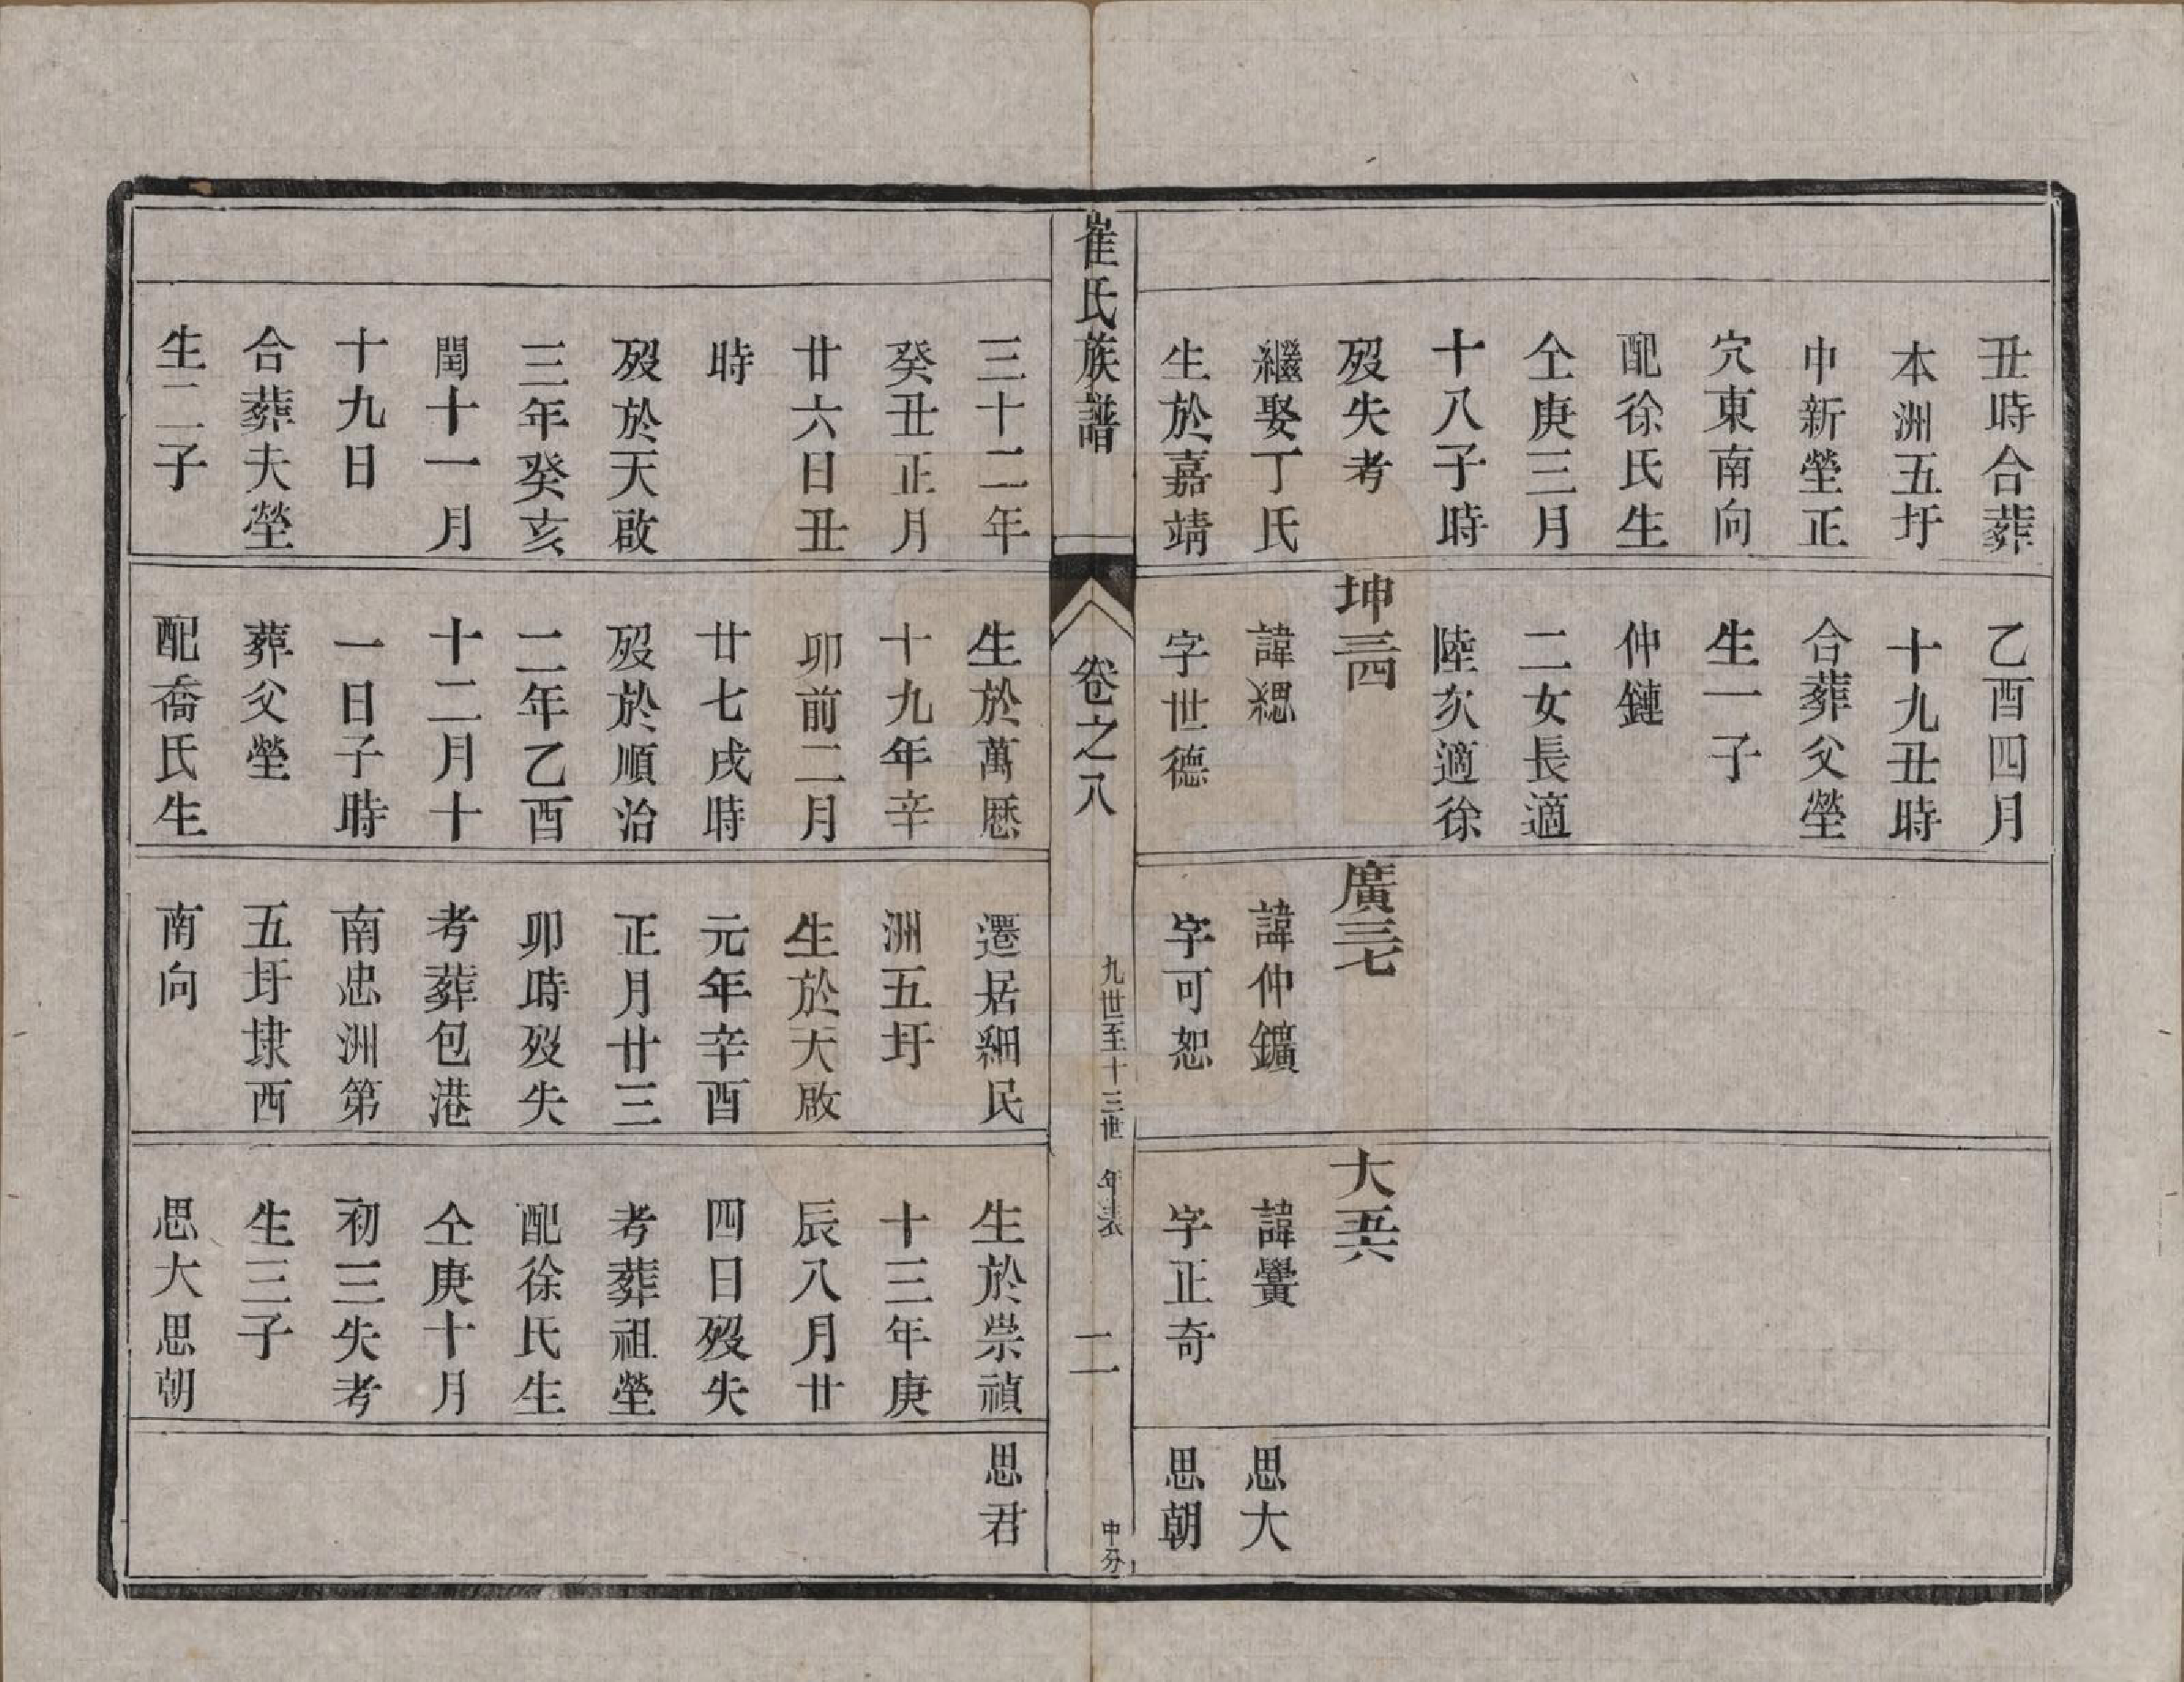 丑時合葬
本洲五圩
中新塋正
穴東南向
配徐氏生
仝庚三月
十八子時
歿失考
繼娶丁氏
生於嘉靖
乙酉四月
十九丑時
合葬父塋
生一子
仲鏈
二女長適
陸次適徐
坤三四
諱緦
字世德
廣三七
諱仲鑛
字可恕
大五六
諱黌
字正奇
思大
思朝
崔氏族譜
卷之八
九世至十三世 年表
二
中分
三十二年
癸丑正月
廿六日丑
時
歿於天啟
三年癸亥
閏十一月
十九日
合葬夫塋
生二子
生於萬曆
十九年辛
卯前二月
廿七戌時
歿於順治
二年乙酉
十二月十
一日子時
葬父塋
配喬氏生
遷居細民
洲五圩
生於天啟
元年辛酉
正月廿三
卯時歿失
考葬包港
南忠洲第
五圩埭西
南向
生於崇禎
十三年庚
辰八月廿
四日歿失
考葬祖塋
配徐氏生
仝庚十月
初三失考
生三子
思大思朝
思君